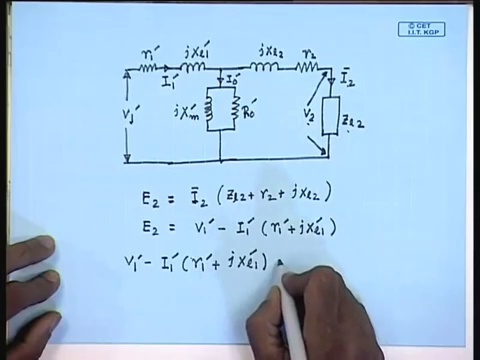 © CET
I.I.T. KGP
r₁′ jxₑ₁′ jxₑ₂ r₂
I₁′ I₀′ Ī₂
V₁′ jX′m R₀′ V₂ Zₑ₂
E₂ = Ī₂ (Zₑ₂ + r₂ + jxₑ₂)
E₂ = V₁′ - I₁′ (r₁′ + jxₑ₁′)
V₁′ - I₁′ (r₁′ + jxₑ₁′)